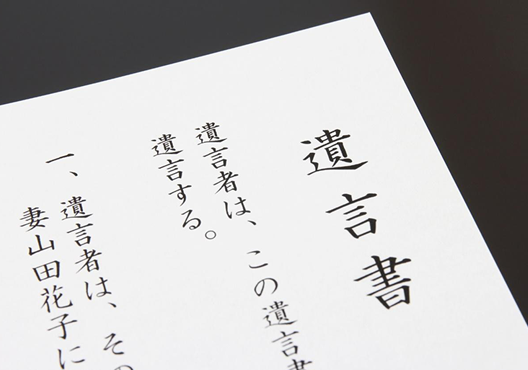 遺言書
遺言者は、この遺言書
遺言する。
一、遺言者は、その
妻山田花子に